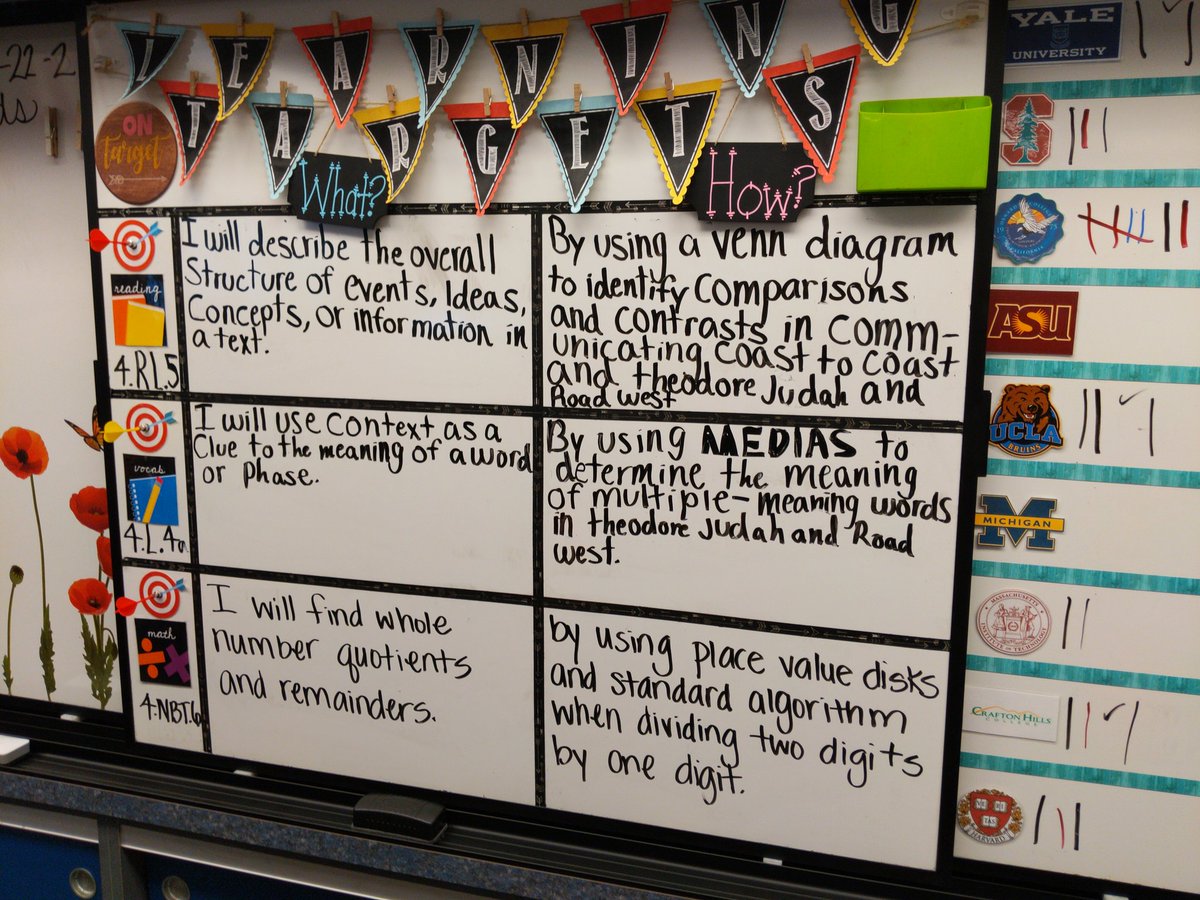 LEARNING
TARGETS
ON
target
What?
How?
reading
4.RL.5
I will describe the overall
Structure of events, Ideas,
Concepts, or information in
a text.
By using a venn diagram
to identify comparisons
and contrasts in comm-
unicating coast to coast
and theodore Judah and
Road west
vocab
4.L.4a
I will use context as a
Clue to the meaning of a word
or phase.
By using MEDIAS to
determine the meaning
of multiple-meaning words
in theodore Judah and Road
west.
math
4.NBT.6
I will find whole
number quotients
and remainders.
by using place value disks
and standard algorithm
when dividing two digits
by one digit.
-22-2
YALE
UNIVERSITY
S
ASU
UCLA
BRUINS
MICHIGAN
MASSACHUSETTS
INSTITUTE OF TECHNOLOGY
CRAFTON HILLS
COLLEGE
HARVARD